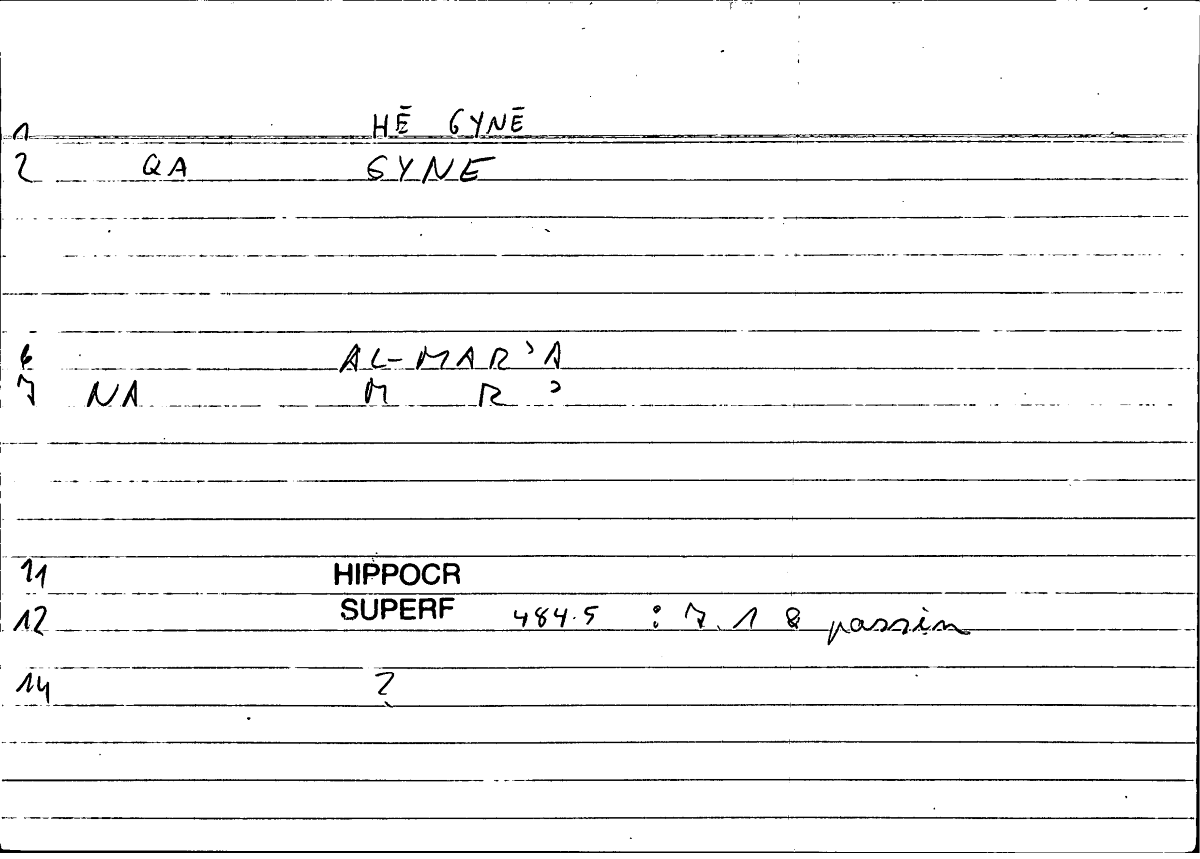 1 HĒ GYNĒ
2 QA GYNE
6 AL-MAR'A
7 NA M R '
11 HIPPOCR
12 SUPERF 484.5 : 7.1 & passim
14 ?